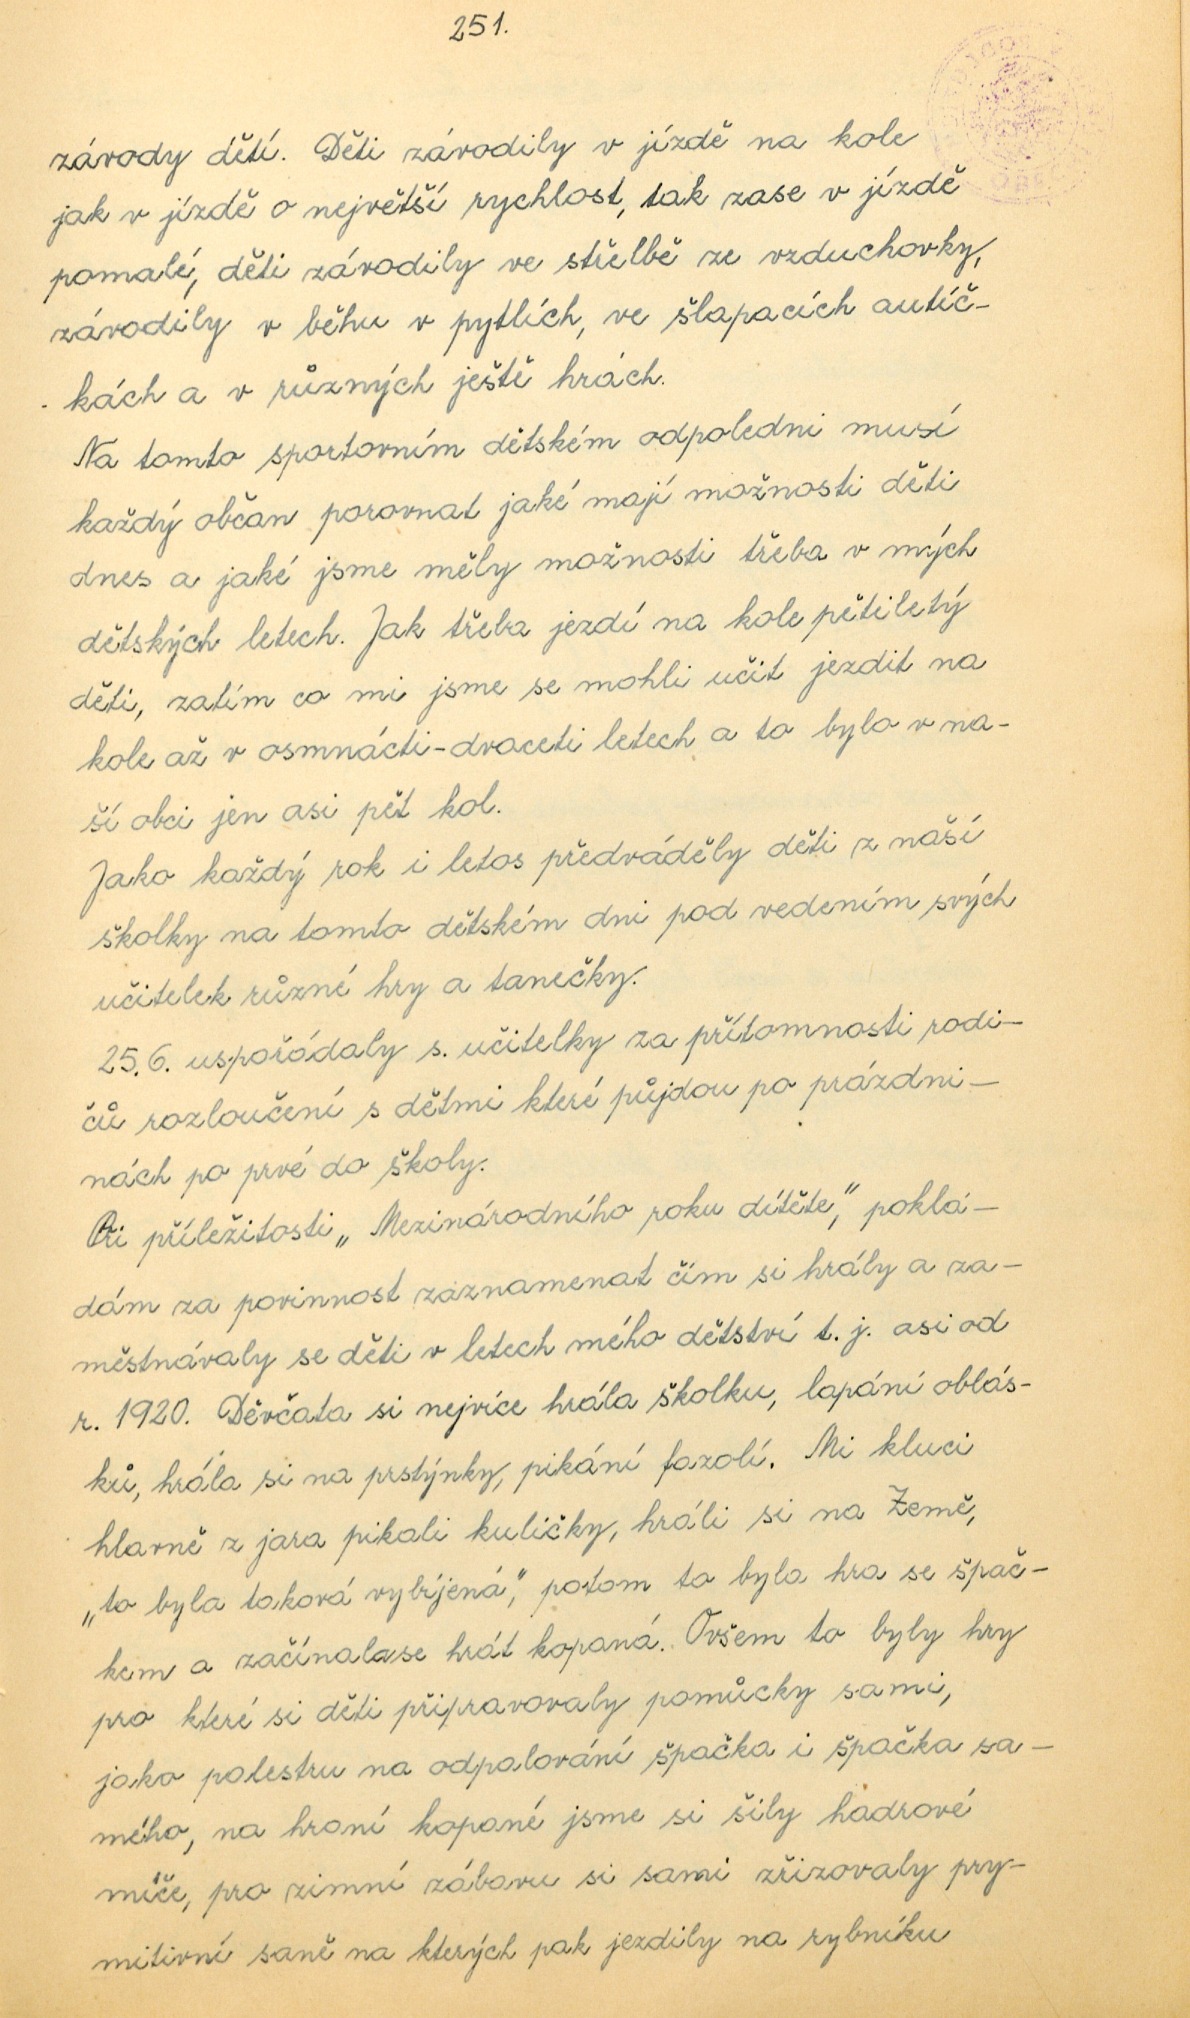 251.
závody dětí. Děti závodily v jízdě na kole
jak v jízdě o největší rychlost, tak zase v jízdě
pomalé, děti závodily ve střelbě ze vzduchovky,
závodily v běhu v pytlích, ve šlapacích autíč-
kách a v různých ještě hrách.
Na tomto sportovním dětském odpoledni musí
každý občan porovnat jaké mají možnosti děti
dnes a jaké jsme měly možnosti třeba v mých
dětských letech. Jak třeba jezdí na kole pětiletý
děti, zatím co mi jsme se mohli učit jezdit na
kole až v osmnácti-dvaceti letech a to bylo v na-
ší obci jen asi pět kol.
Jako každý rok i letos předváděly děti z naší
školky na tomto dětském dni pod vedením svých
učitelek různé hry a tanečky.
25.6. uspořádaly s. učitelky za přítomnosti rodi-
čů rozloučení s dětmi které půjdou po prázdni-
nách po prvé do školy.
Při příležitosti „Mezinárodního roku dítěte," poklá-
dám za povinnost zaznamenat čím si hrály a za-
městnávaly se děti v letech mého dětství t. j. asi od
r. 1920. Děvčata si nejvíce hrála školku, lapání oblás-
ků, hrála si na prstýnky, pikání fazolí. Mi kluci
hlavně z jara pikali kuličky, hráli si na Země,
„to byla taková vybíjená," potom to byla hra se špač-
kem a začínalase hrát kopaná. Ovšem to byly hry
pro které si děti připravovaly pomůcky sami,
jako palestru na odpalování špačka i špačka sa-
mého, na hraní kopané jsme si šily hadrové
míče, pro zimní zábavu si sami zřizovaly pry-
mitivní saně na kterých pak jezdily na rybníku